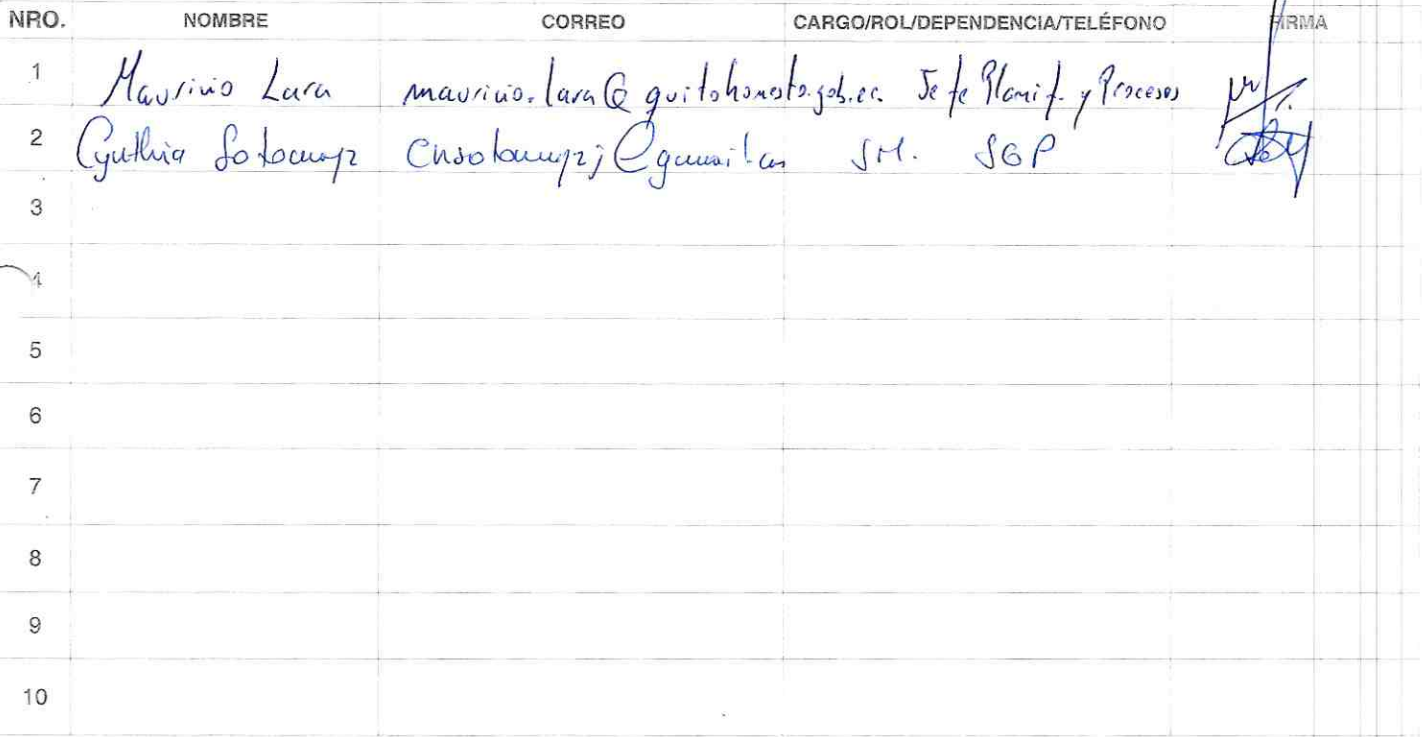 NRO. NOMBRE CORREO CARGO/ROL/DEPENDENCIA/TELÉFONO FIRMA
1 Mauricio Lara mauricio.lara@quitohonesto.gob.ec. Jefe Planif. y Procesos
2 Cynthia SM. SGP
3
4
5
6
7
8
9
10